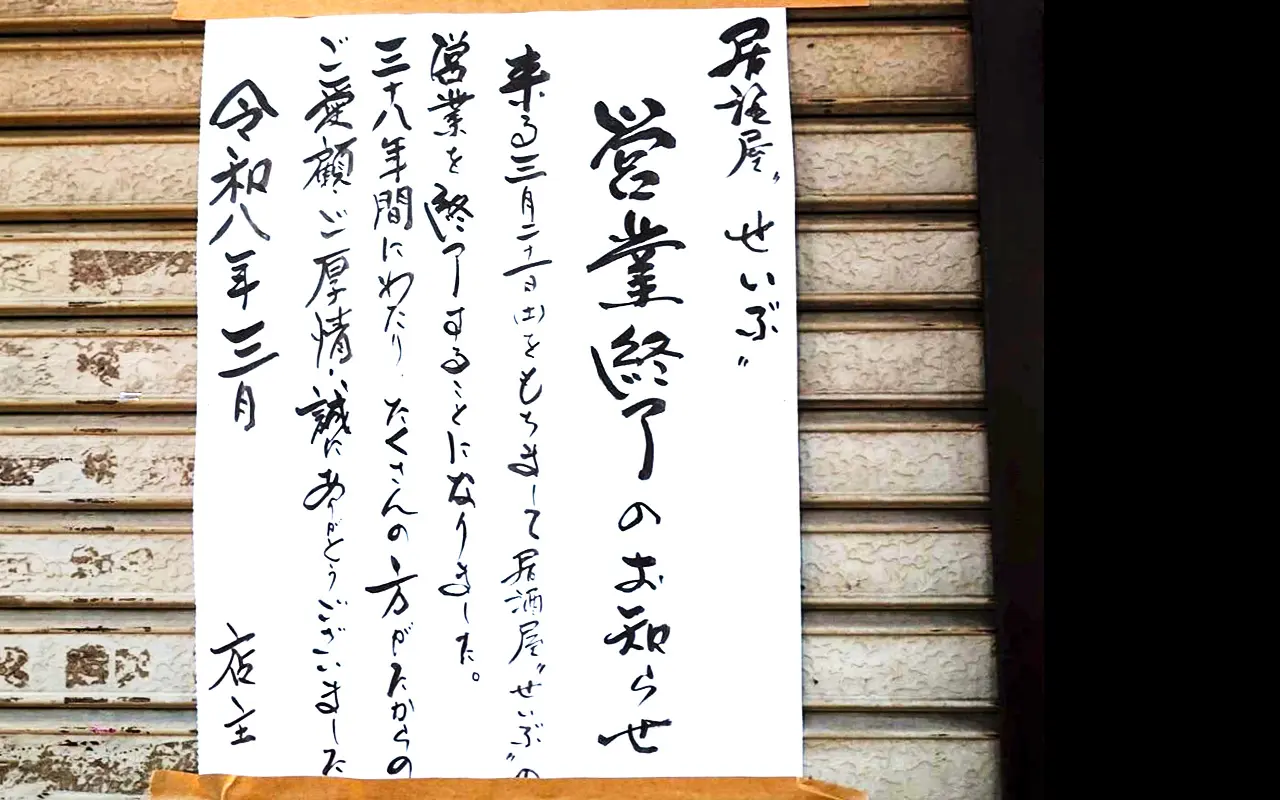 居酒屋〝せいぶ〟
営業終了のお知らせ
来る三月二十一日(土)をもちまして居酒屋〝せいぶ〟の
営業を終了することになりました。
三十八年間にわたり、たくさんの方がたからの
ご愛顧、ご厚情、誠にありがとうございました
令和八年三月 店主